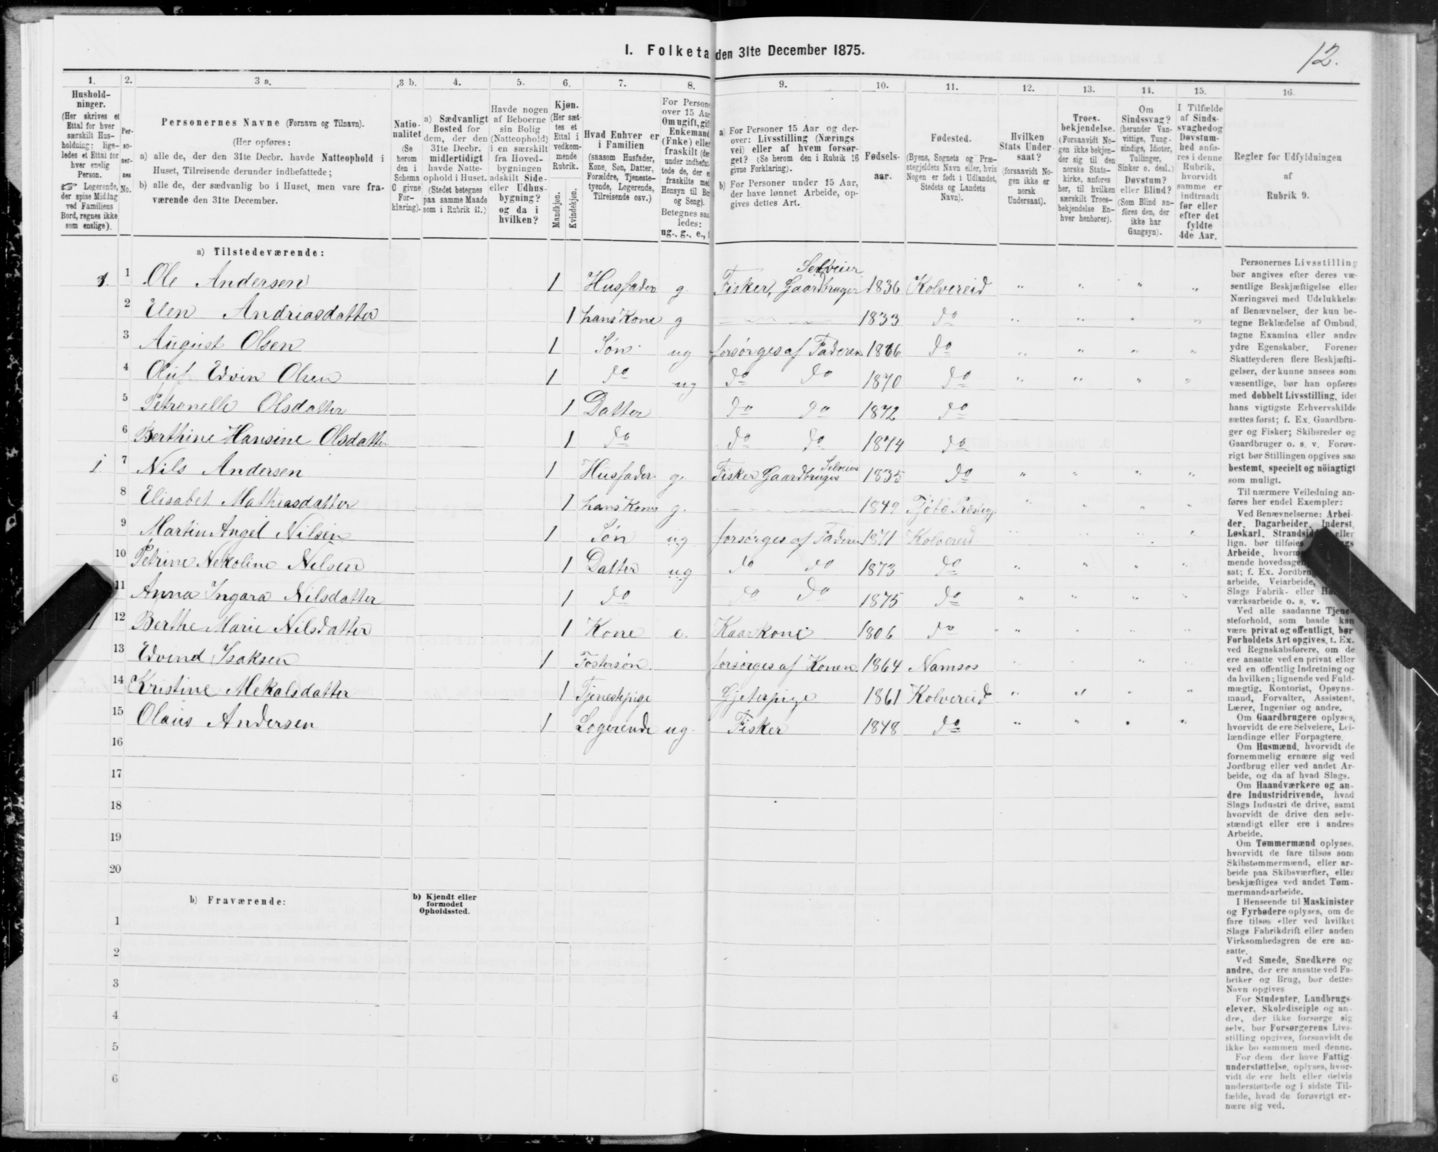 I. Folketa den 31te December 1875.
12.
1. 2. 3 a. 3 b. 4. 5. 6. 7. 8. 9. 10. 11. 12. 13. 14. 15. 16.
Hushold-
ninger.
(Her skrives et
Ettal for hver
særskilt Hus-
holdning; lige-
ledes et Ettal for
hver enslig
Person.
Logerende,
der spise Middag
ved Familiens
Bord, regnes ikke
som enslige).
Per-
so-
ner-
nes
No.
Personernes Navne (Fornavn og Tilnavn).
(Her opføres:
a) alle de, der den 31te Decbr. havde Natteophold i
Huset, Tilreisende derunder indbefattede;
b) alle de, der sædvanlig bo i Huset, men vare fra-
værende den 31te December.
Natio-
nalitet
(Se
herom
den i
Schema
O givne
For-
klaring).
a) Sædvanligt
Bosted for
dem, der den
31te Decbr.
midlertidigt
havde Natte-
ophold i Huset.
(Stedet betegnes
paa samme Maade
som i Rubrik 11.)
Havde nogen
af Beboerne
sin Bolig
(Natteophold)
i en særskilt
fra Hoved-
bygningen
adskilt Side-
eller Udhus-
bygning?
og da i
hvilken?
Kjøn.
(Her sæt-
tes et
Ettal i
vedkom-
mende
Rubrik.
Mandkjøn.
Kvindekjøn.
Hvad Enhver er
i Familien
(saasom Husfader,
Kone, Søn, Datter,
Forældre, Tjeneste-
tyende, Logerende,
Tilreisende osv.)
For Persone
over 15 Aar
Om ugift, gift
Enkemand
(Fnke) eller
fraskilt (der
Betegnes saa
ledes:
ug., g., e.,
a) For Personer 15 Aar og der-
over: Livsstilling (Nærings
vei) eller af hvem forsør-
get? (Se herom den i Rubrik 16
givne Forklaring).
b) For Personer under 15 Aar,
der have lønnet Arbeide, op-
gives dettes Art.
Fødsels-
aar.
Fødested.
(Byens, Sognets og Præ-
stegjeldets Navn eller, hvis
Nogen er født i Udlandet,
Stedets og Landets
Navn).
Hvilken
Stats Under
saat?
(forsaavidt No-
gen ikke er
norsk
Undersaat).
Troes-
bekjendelse.
(Forsaavidt No-
gen ikke bekjen-
der sig til den
norske Stats-
kirke, anføres
her, til hvilken
særskilt Troes-
bekjendelse En-
hver henhører).
Om
Sindssvag?
(herunder Van-
vittige, Tung-
sindige, Idioter,
Tullinger,
Sinker o. desl.)
Døvstum?
eller Blind?
(Som Blind an-
føres den, der
ikke har
Gangsyn).
I Tilfælde
af Sinds-
svaghed og
Døvstum-
hed anfø-
res i denne
Rubrik,
hvorvidt
samme er
indtraadt
før eller
efter det
fyldte
4de Aar.
Regler for Udfyldningen
af
Rubrik 9.
a) Tilstedeværende:
1 1 Ole Andersen 1 Husfader g Fisker, Gaardbruger Selveier 1836 Kolvereid " " " "
2 Elen Andriasdatter 1 hans Kone g 1833 do " " " "
3 August Olsen 1 Søn ug forsørges af Faderen 1866 do " " " "
4 Oluf Edvin Olsen 1 do ug do do 1870 do " " " "
5 Petronelle Olsdatter 1 Datter do do 1872 do
6 Berthine Hansine Olsdatter 1 do do do 1874 do
1 7 Nils Andersen 1 Husfader g. Fisker Gaardbruger Selveier 1835 do " " " "
8 Elisabet Mathiasdatter 1 hans Kone g.
9 Martin Nilsen 1 Søn ug forsørges af Faderen 1871 Kolvereid
10 Petrine Nekoline Nilsen 1 Datter ug do do 1873 do
11 Anna Ingara Nilsdatter 1 do do do 1875 do " " " "
1 12 Berthe Marie Nilsdatter 1 Kone e. Kaarkone 1806 do " " " "
13 Edvind Isaksen 1 Fostersøn forsørges af Konen 1864 Namsos
14 Kristine Mekalsdatter 1 Tjenestpige Gjeterpige 1861 Kolvereid " " " "
15 Olaus Andersen 1 Logerende ug. Fisker 1848 do " " " "
16
17
18
19
20
b) Fraværende:
b) Kjendt eller
formodet
Opholdssted.
1
2
3
4
5
6
Personernes Livsstilling
bør angives efter deres væ-
sentlige Beskjæftigelse eller
Næringsvei med Udelukkelse
af Benævnelser, der kun be-
tegne Beklædelse af Ombud,
tagne Examina eller andre
ydre Egenskaber. Forener
Skatteyderen flere Beskjæfti-
gelser, der kunne ansees som
væsentlige, bør han opføres
med dobbelt Livsstilling, idet
hans vigtigste Erhvervskilde
sættes først; f. Ex. Gaardbru-
ger og Fisker; Skibsreder og
Gaardbruger o. s. v. Forøv-
rigt bør Stillingen opgives saa
bestemt, specielt og nöiagtigt
som muligt.
Til nærmere Veiledning an-
føres her endel Exempler:
Ved Benævnelserne: Arbei-
der, Dagarbeider, Inderst,
Løskarl, eller
lign. bør tilføies
Arbeide, hvorm
mende hovedsage
sat; f. Ex. Jordbru
arbeide, Veiarbeide,
Slags Fabrik- eller
værksarbeide o. s. v.
Ved alle saadanne Tjene
steforhold, som baade kan
være privat og offentligt, bør
Forholdets Art opgives, t. Ex.
ved Regnskabsførere, om de
ere ansatte ved en privat eller
ved en offentlig Indretning og
da hvilken; lignende ved Fuld-
mægtig, Kontorist, Opsyns-
mand, Forvalter, Assistent,
Lærer, Ingeniør og andre.
Om Gaardbrugere oplyses,
hvorvidt de ere Selveiere, Lei-
lændinge eller Forpagtere.
Om Husmænd, hvorvidt de
fornemmelig ernære sig ved
Jordbrug eller ved andet Ar-
beide, og da af hvad Slags.
Om Haandværkere og an-
dre Industridrivende, hvad
Slags Industri de drive, samt
hvorvidt de drive den selv-
stændigt eller ere i andres
Arbeide.
Om Tømmermænd oplyses,
hvorvidt de fare tilsøs som
Skibstømmermænd, eller ar-
beide paa Skibsværfter, eller
beskjæftiges ved andet Tøm-
mermandsarbeide.
I Henseende til Maskinister
og Fyrbødere oplyses, om de
fare tilsøs eller ved hvilket
Slags Fabrikdrift eller anden
Virksomhedsgren de ere an-
satte.
Ved Smede, Snedkere og
andre, der ere ansatte ved Fa-
briker og Brug, bør dettes
Navn opgives
For Studenter, Landbrugs-
elever, Skoledisciple og an-
dre, der ikke forsørge sig
selv, bør Forsørgerens Livs-
stilling opgives, forsaavidt de
ikke bo sammen med denne.
For dem der have Fattig-
understøttelse, oplyses, hvor-
vidt de ere helt eller delvis
understøttede og i sidste Til-
fælde, hvad de forøvrigt er-
nære sig ved.